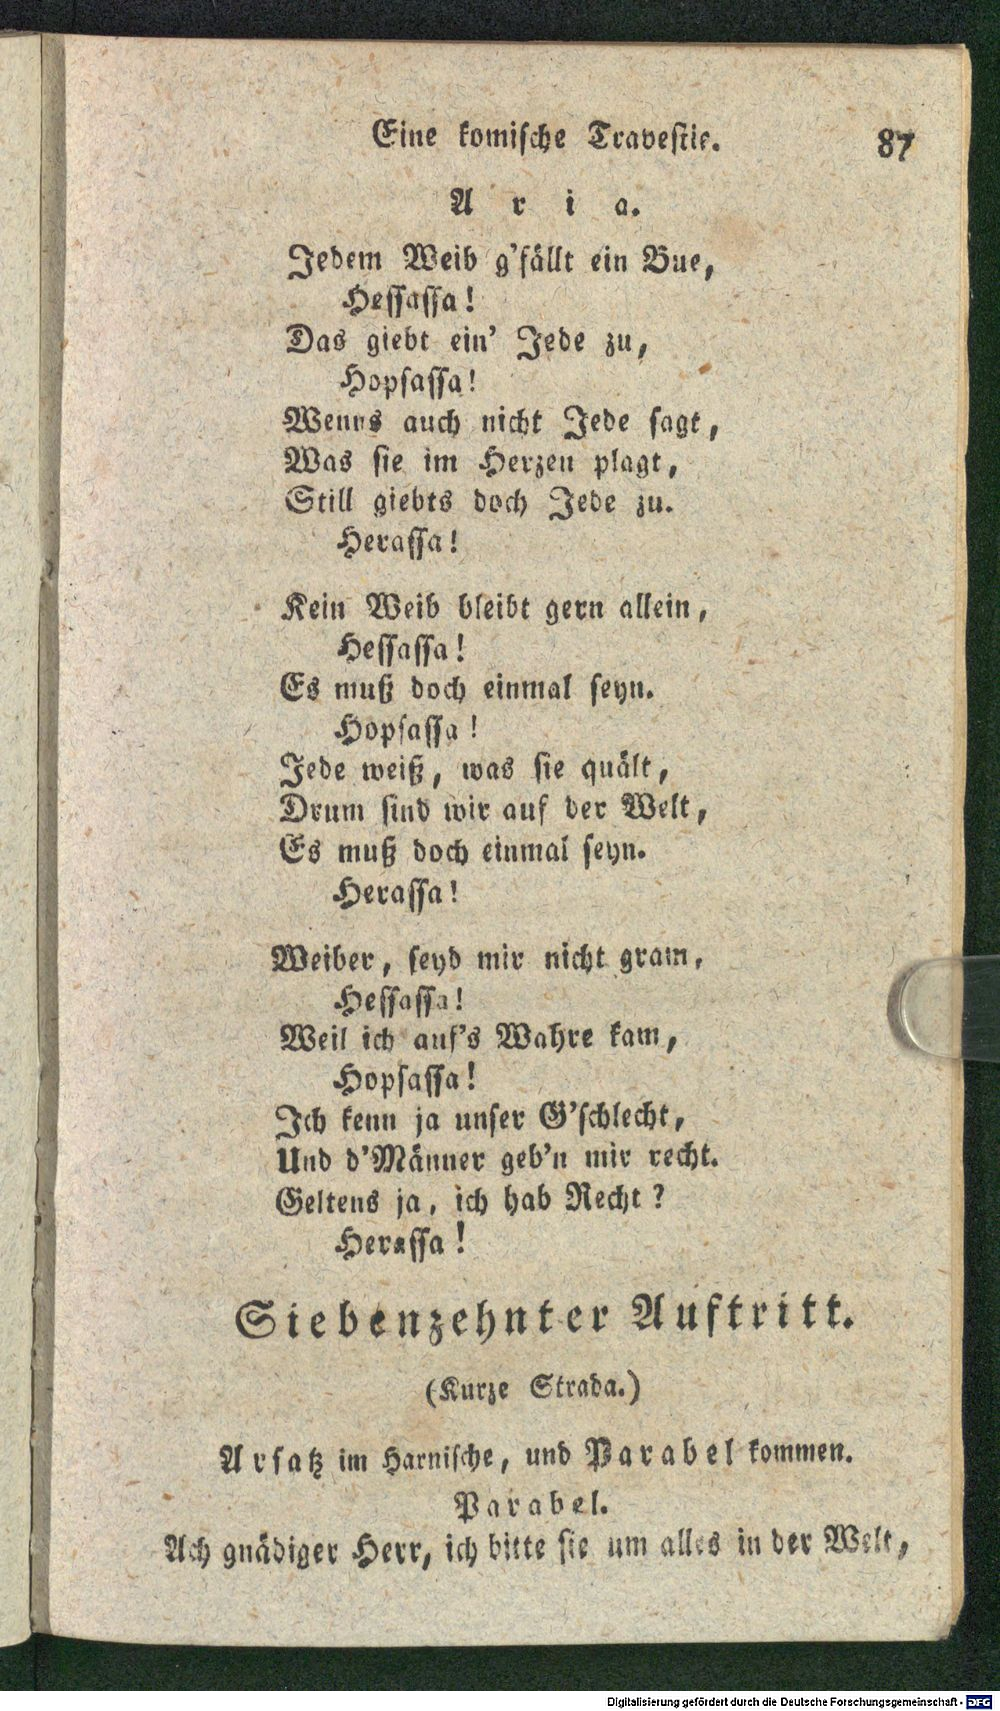 Eine komische Travestie. 87
Aria.
Jedem Weib g'fällt ein Bue,
Hessassa!
Das giebt ein' Jede zu,
Hopsassa!
Wenns auch nicht Jede sagt,
Was sie im Herzen plagt,
Still giebts doch Jede zu.
Herassa!
Kein Weib bleibt gern allein,
Hessassa!
Es muß doch einmal seyn.
Hopsassa!
Jede weiß, was sie quält,
Drum sind wir auf der Welt,
Es muß doch einmal seyn.
Herassa!
Weiber, seyd mir nicht gram,
Hessassa!
Weil ich auf's Wahre kam,
Hopsassa!
Ich kenn ja unser G'schlecht,
Und d'Männer geb'n mir recht.
Geltens ja, ich hab Recht?
Herassa!
Siebenzehnter Auftritt.
(Kurze Strada.)
Arsatz im Harnische, und Parabel kommen.
Parabel.
Ach gnädiger Herr, ich bitte sie um alles in der Welt,
Digitalisierung gefördert durch die Deutsche Forschungsgemeinschaft - DFG